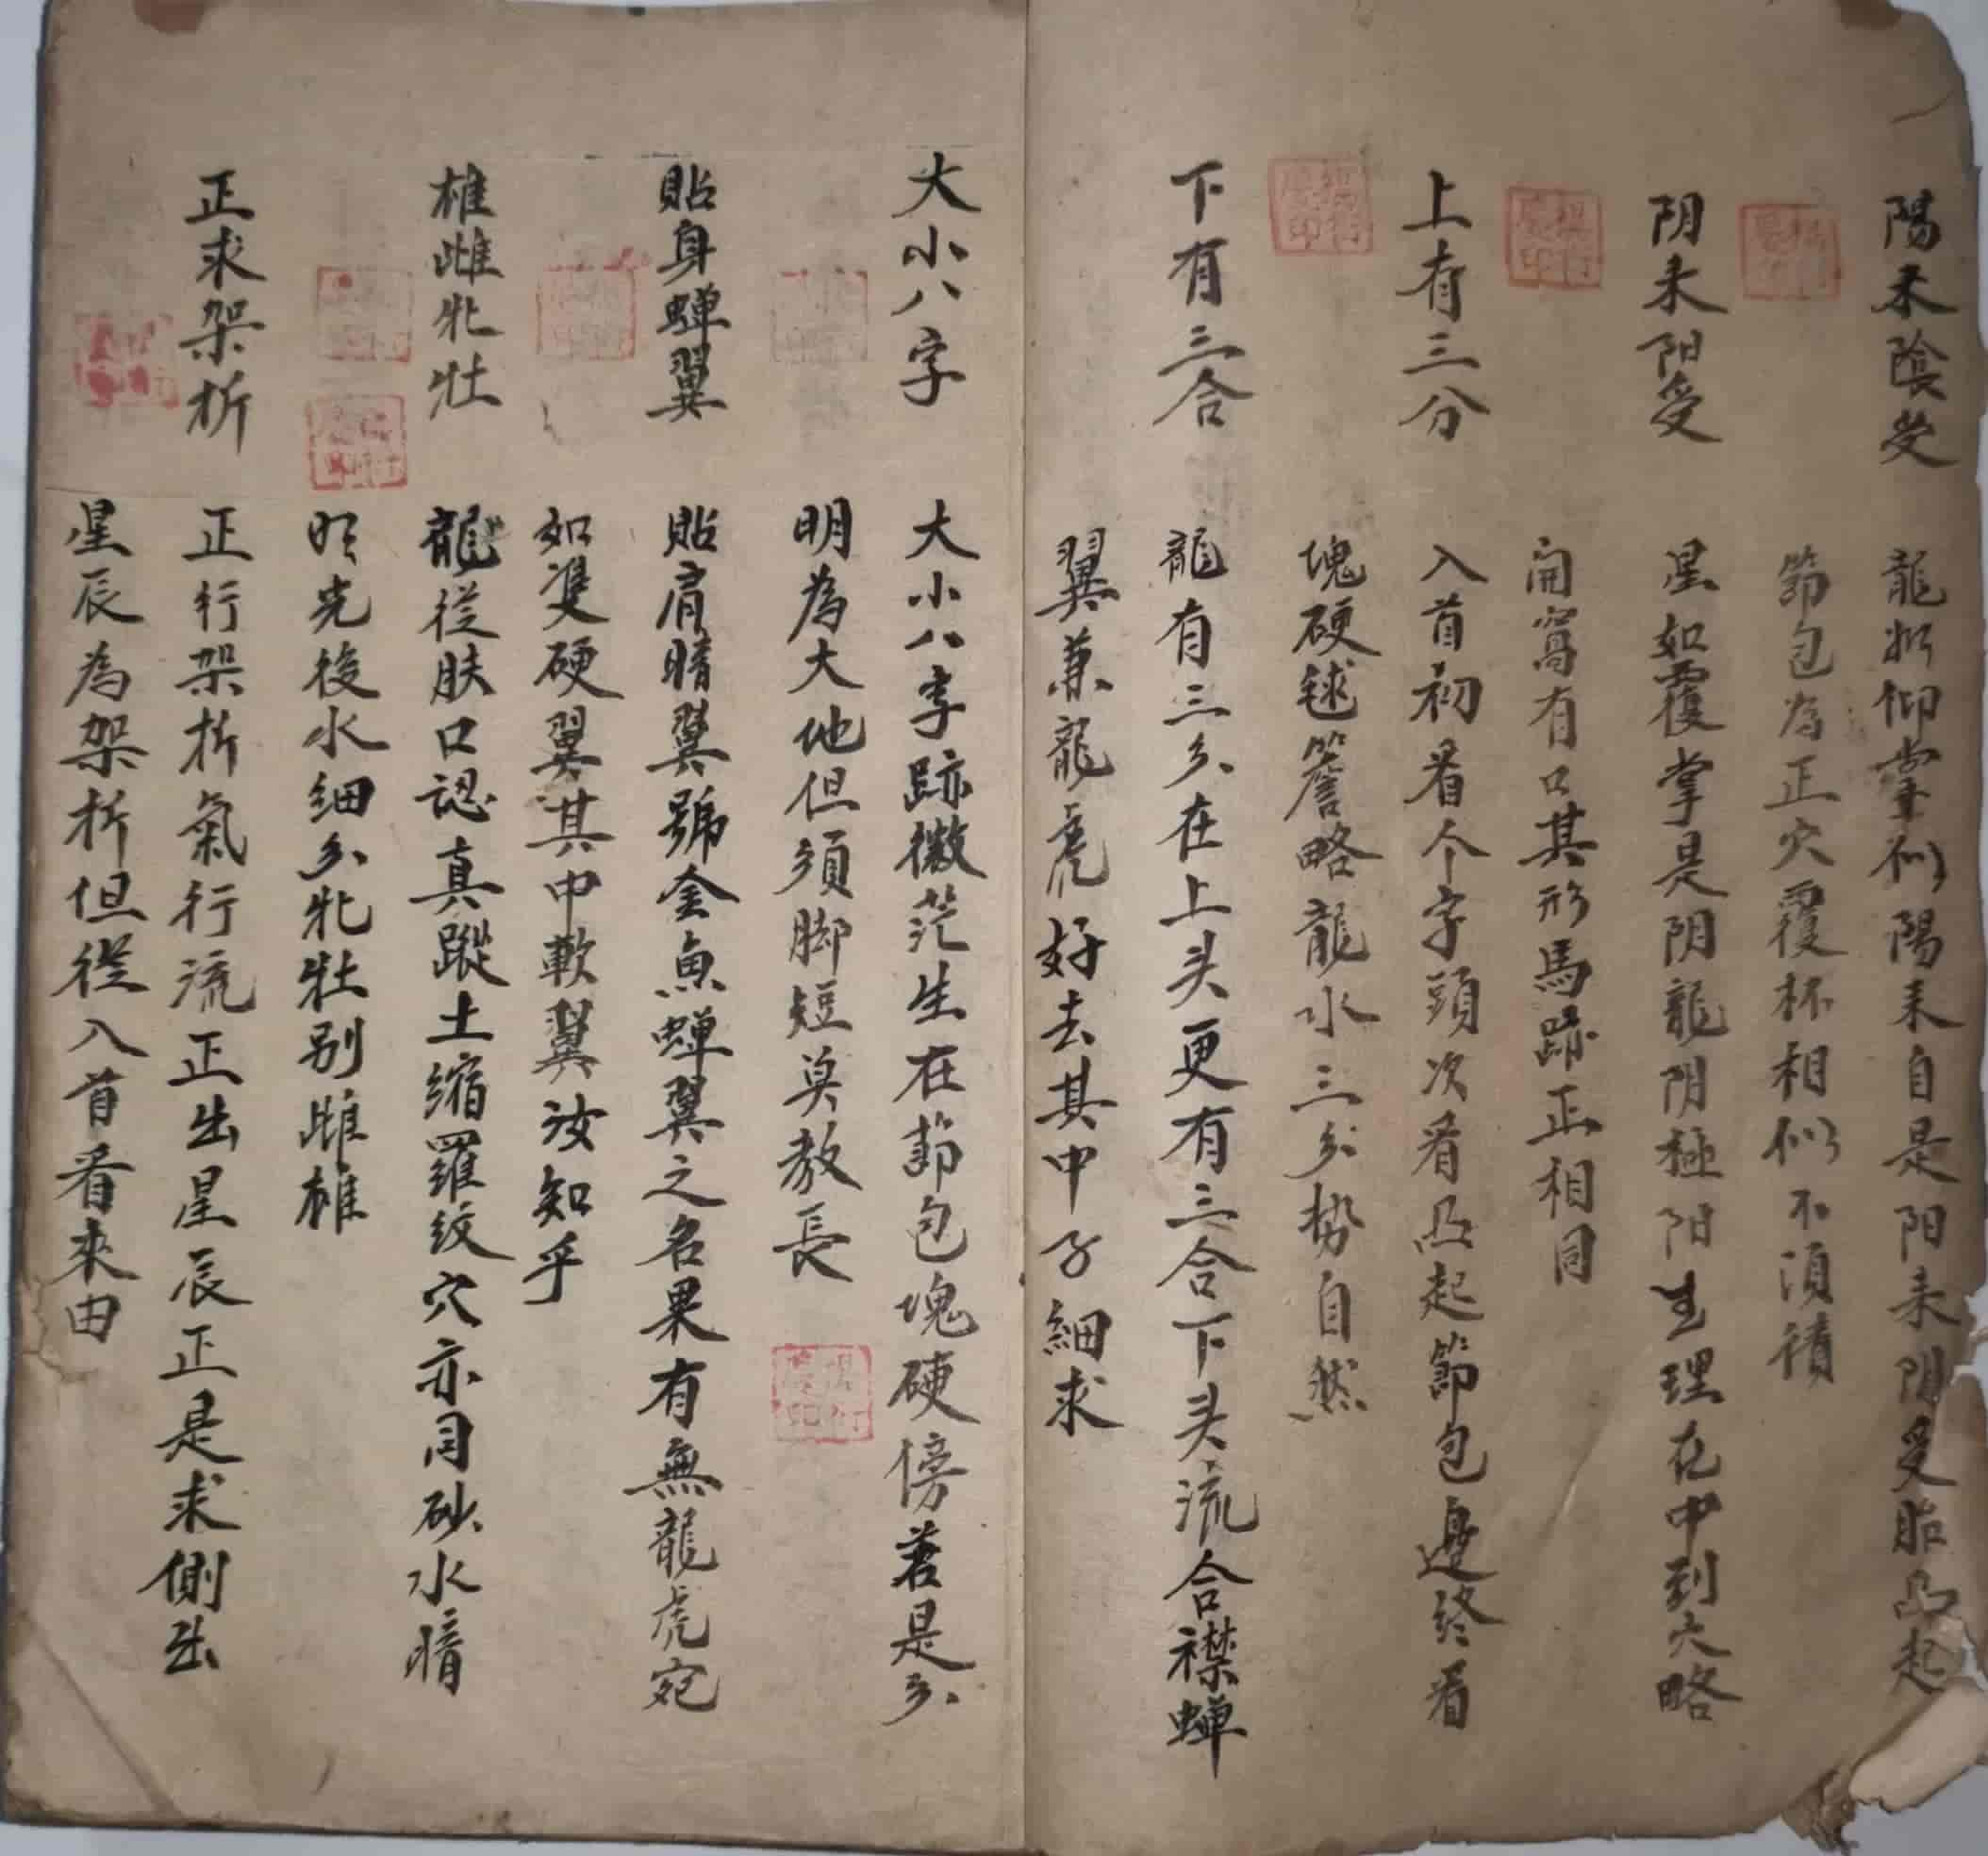 陽來陰受 龍形仰掌似陽来自是阳来阴受胎凸起
節包為正穴覆杯相似不須猜
阴来阳受 星如覆掌是阴龍阴極阳生理在中到穴略
開窩有口其形馬跡正相同
上有三分 入首初看个字頭次看凸起節包邊終看
塊硬毬簷略龍水三分势自然
下有三合 龍有三分在上头更有三合下头流合襟蝉
翼兼龍虎好去其中子細求
大小八字 大小八字跡微茫生在節包塊硬傍若是分
明為大他但須脚短莫教長
貼身蝉翼 貼肩暗翼號金魚蝉翼之名果有無龍虎宛
如雙硬翼其中軟翼汝知乎
雄雌牝牡 龍從肤口認真蹤土縮羅紋穴亦同砂水暗
明先後水細分牝牡别雌雄
正求架折 正行架折氣行流正出星辰正是求側出
星辰為架折但從入首看來由